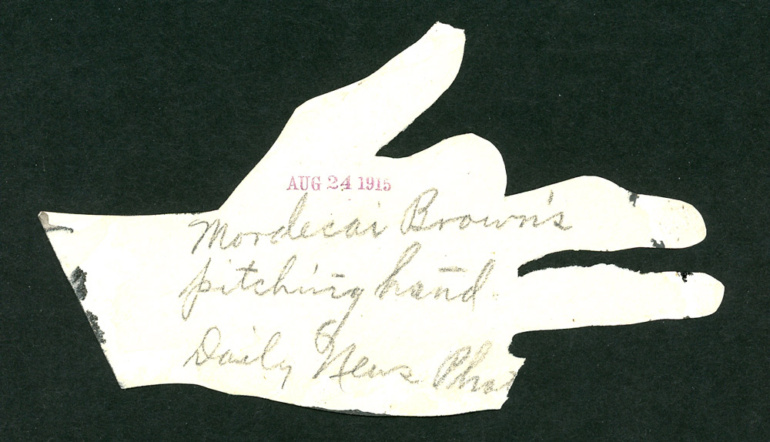 AUG 24 1915
Mordecai Brown's
pitching hand
Daily News Phot